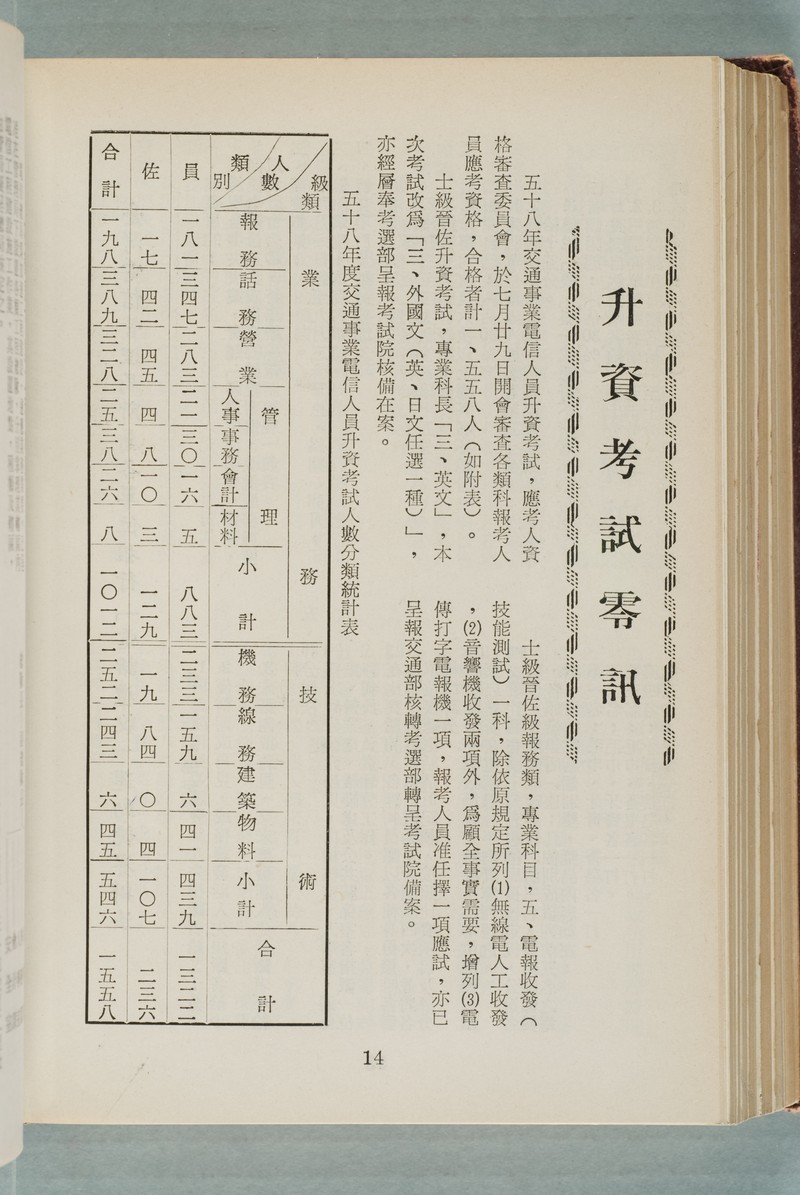 升資考試零訊
五十八年交通事業電信人員升資考試，應考人資
格審查委員會，於七月廿九日開會審查各類科報考人
員應考資格，合格者計一、五五八人（如附表）。
士級晉佐升資考試，專業科長「三、英文」，本
次考試改爲「三、外國文（英、日文任選一種）」，
亦經層奉考選部呈報考試院核備在案。
士級晉佐級報務類，專業科目，五、電報收發（
技能測試）一科，除依原規定所列⑴無線電人工收發
，⑵音響機收發兩項外，爲顧全事實需要，增列⑶電
傳打字電報機一項，報考人員准任擇一項應試，亦已
呈報交通部核轉考選部轉呈考試院備案。
五十八年度交通事業電信人員升資考試人數分類統計表
級類 人數 類別
業務 技術
管理
報務 話務 營業 人事 事務 會計 材料 小計 機務 線務 建築 物料 小計 合計
員 一八一 三四七 二八三 二一 三〇 一六 五 八八三 二三三 一五九 六 四一 四三九 一三二二
佐 一七 四二 四五 四 八 一〇 三 一二九 一九 八四 〇 四 一〇七 二三六
合計 一九八 三八九 三二八 二五 三八 二六 八 一〇一二 二五二 二四三 六 四五 五四六 一五五八
14